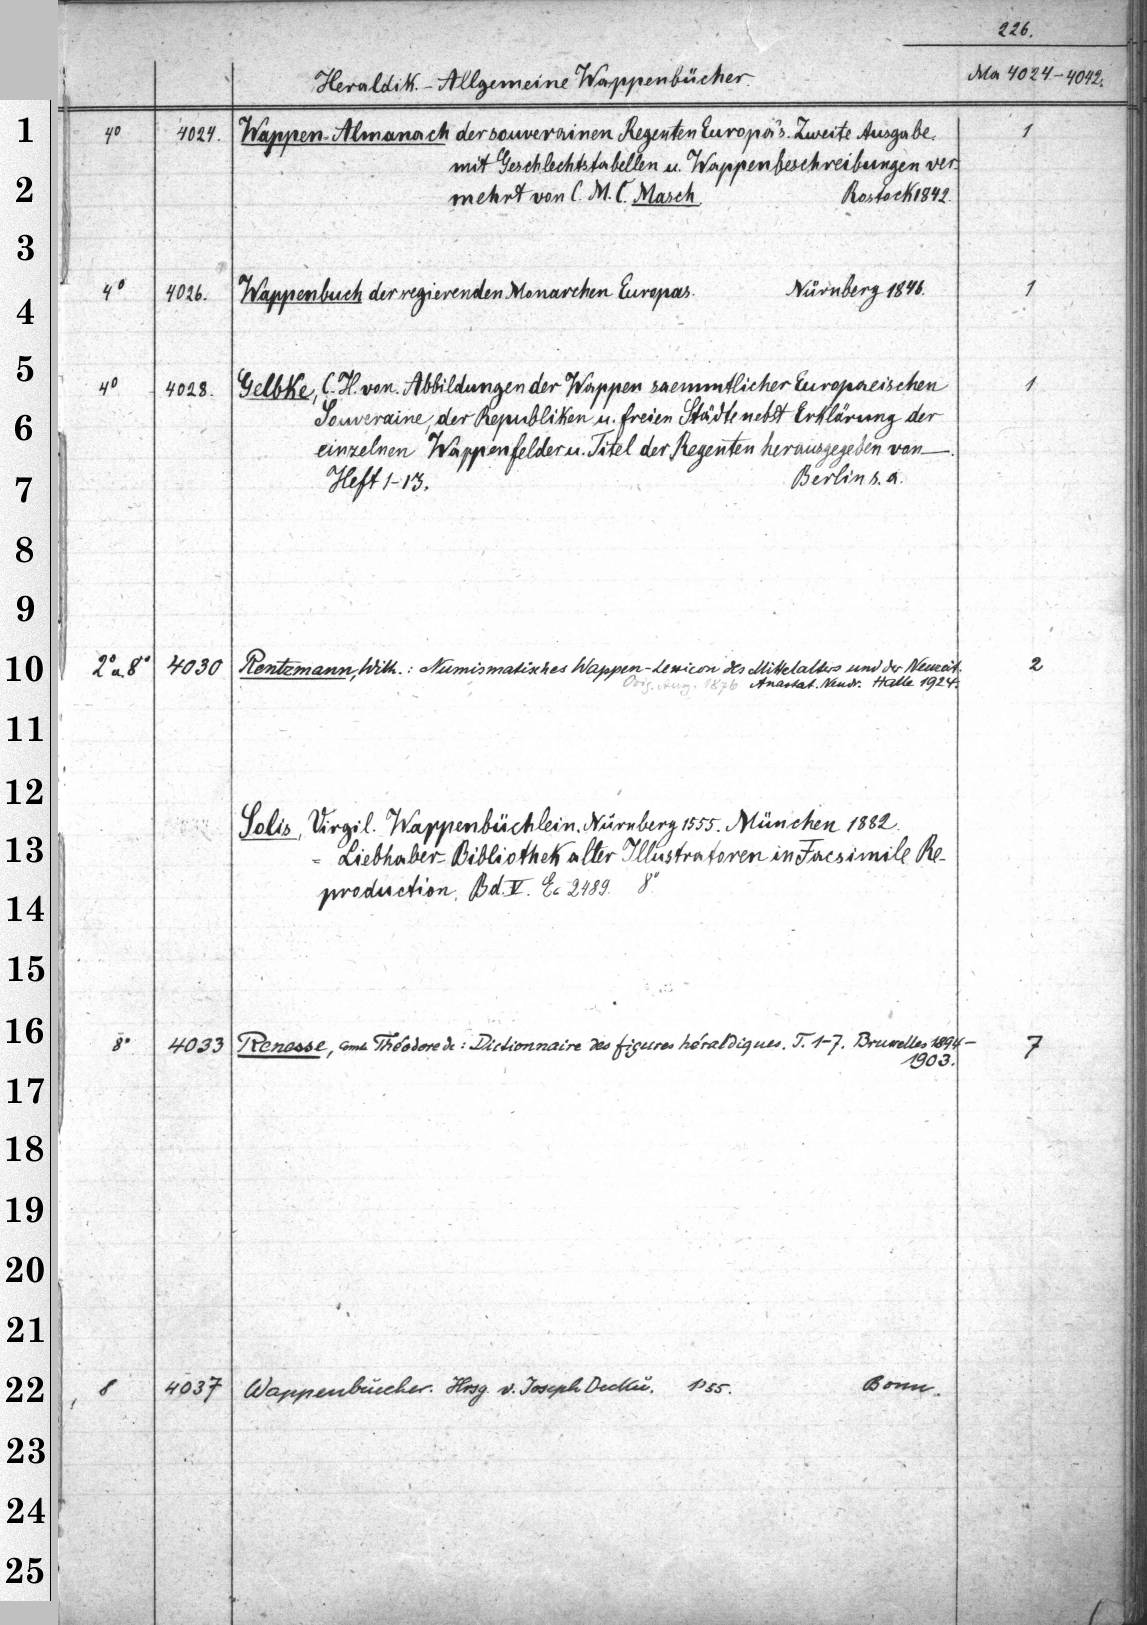 226.
Heraldik. - Allgemeine Wappenbücher. Ma 4024-4042.
1
4° 4024. Wappen-Almanach der souverainen Regenten Europa's. Zweite Ausgabe. 1
mit Geschlechtstabellen u. Wappenbeschreibungen ver-
2
mehrt von C. M. C. Masch. Rostock 1842.
3
4° 4026. Wappenbuch der regierenden Monarchen Europas. Nürnberg 1846. 1
4
5
4° 4028. Gelbke, C. H. von. Abbildungen der Wappen saemmtlicher Europaeischen 1
Souveraine, der Republiken u. freien Städte nebst Erklärung der
6
einzelnen Wappenfelder u. Titel der Regenten herausgegeben von —.
7
Heft 1-13. Berlin s. a.
8
9
10
2° u. 8° 4030 Rentzmann, Wilh.: Numismatisches Wappen-Lexicon des Mittelalters und der Neuzeit. 2
Orig. Ausg. 1876 Anastat. Neudr. Halle 1924.
11
12
Solis, Virgil. Wappenbüchlein. Nürnberg 1555. München 1882.
13
= Liebhaber-Bibliothek alter Illustratoren in Facsimile Re-
production. Bd. V. Ec 2489. 8°
14
15
16
8° 4033 Renesse, Théodore de: Dictionnaire des figures héraldiques. T. 1-7. Bruxelles 1894- 7
1903.
17
18
19
20
21
22
8 4037 Wappenbücher. Hrsg. v. Joseph Bonn.
23
24
25